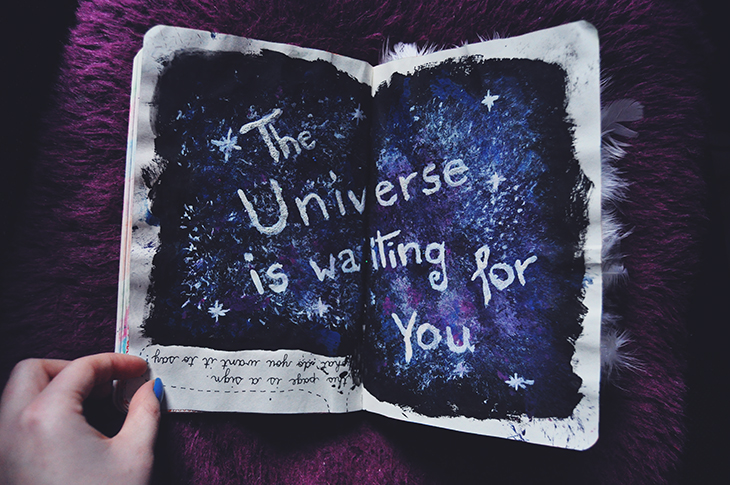 The
Universe
is waiting for
You
this page is a sign.
what do you want it to say?